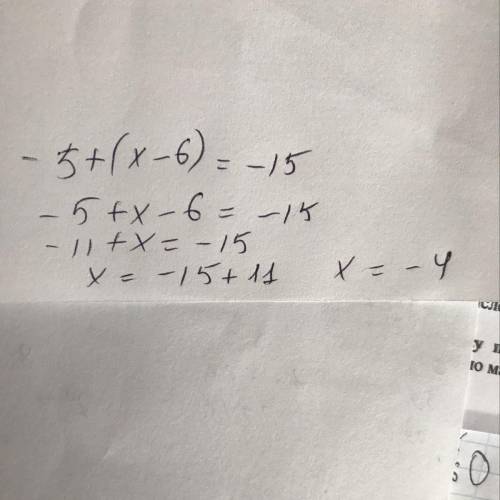 - 5+(x-6) = -15
- 5 + x - 6 = -15
- 11 + x = -15
x = -15 + 11 x = -4
у
ю м